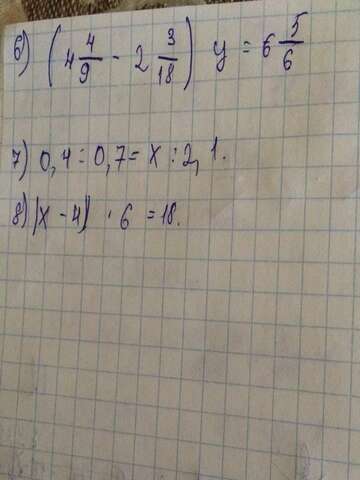 6) (4 4/9 - 2 3/18) y = 6 5/6
7) 0,4 : 0,7 = x : 2,1.
8) |x - 4| · 6 = 18.